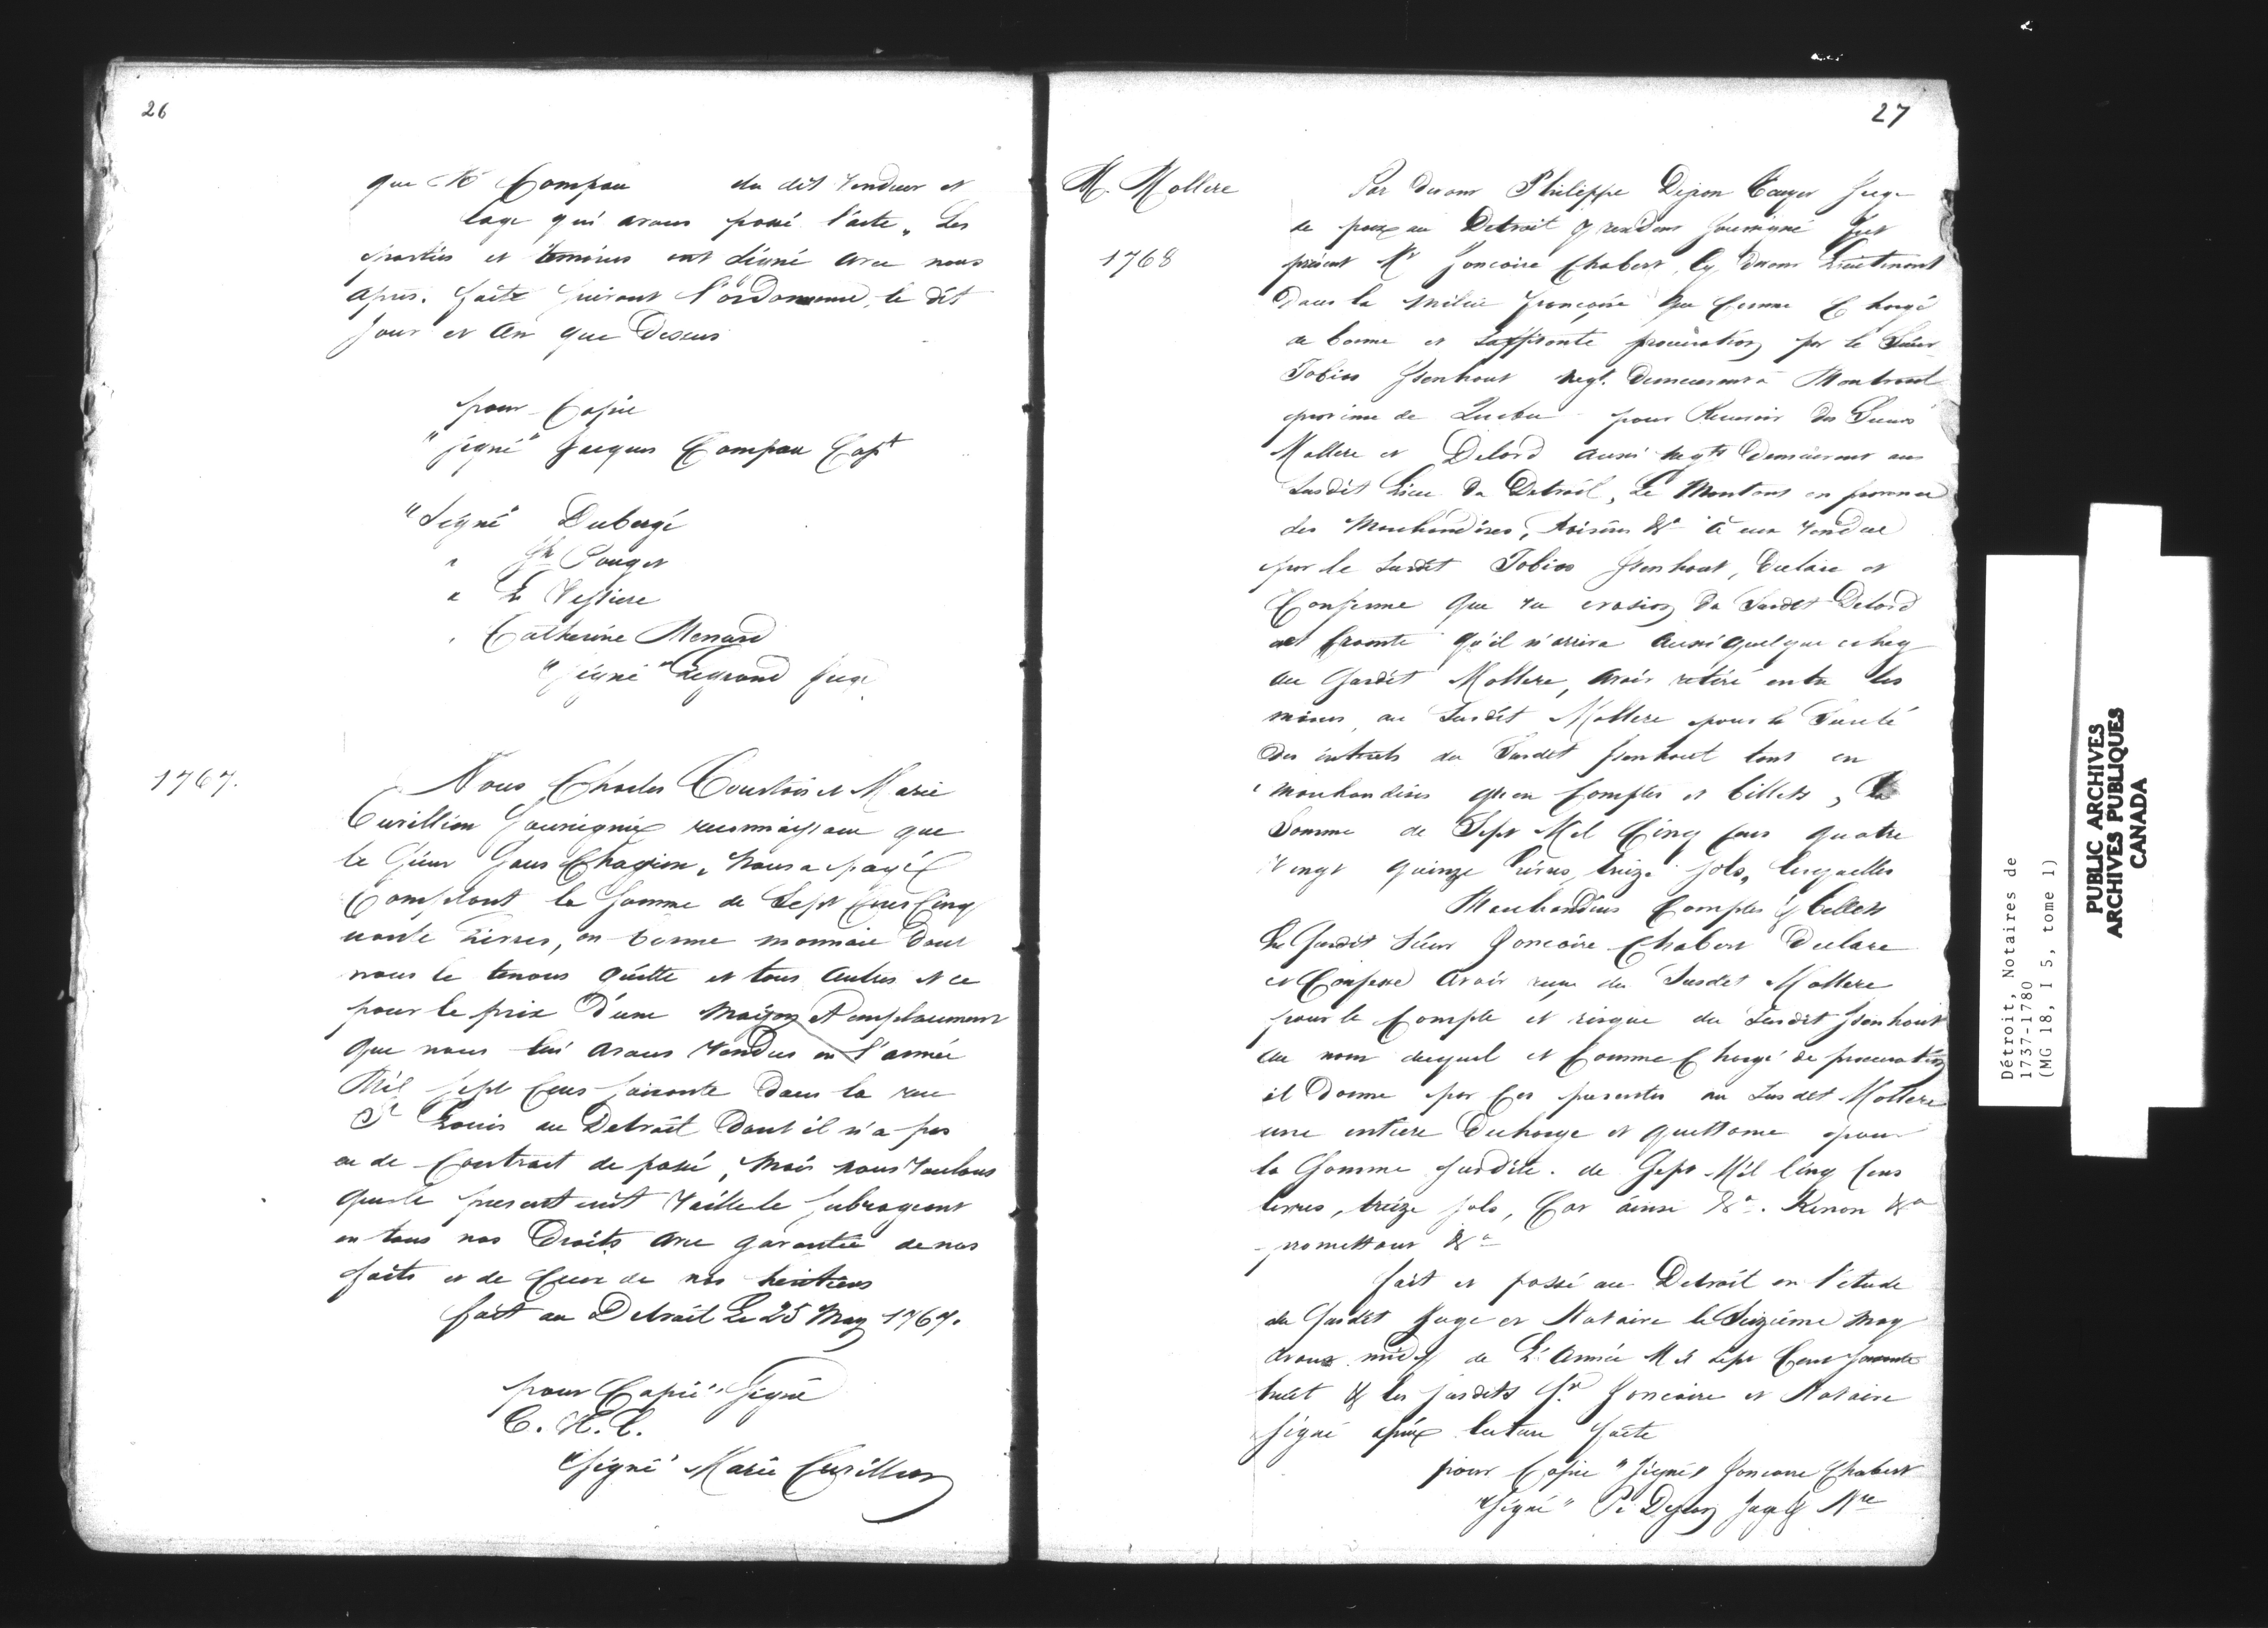 26
que Mr Compau du dit vendeur et
lage qui avons passé l'acte, Les
parties et temoins ont signé avec nous
après. faite suivant l'ordonnance, le dit
jour et an que dessus
pour Copie
"signé" Jacques Campau Capt
"Signé" Dubergé
" Pouget
" Vessiere
" Catherine Menard
"signé" Legrand Juge
1767.
Nous Charles Courtois et Marie
Curillion Soussignés reconnaissons que
le Sieur Chapion, nous a payé
Comptant la somme de Sept Cens Cinq
uante Livres, en bonne monnaie dont
nous le tenons quitte et tous autres et ce
pour le prix d'une maison et emplacement
que nous lui avons vendus en l'année
Mil Sept Cens Soixante dans la rue
St Louis au Detroit dont il n'a pas
eu de Contrat de passé, mais nous voulons
que le present vaille le subrogeant
en tous nos Droits avec garantie de nos
faits et de Ceux de nos heritiers
fait au Detroit Le 25 May 1767.
pour Copie "Signé
C. H. C.
"signé" Marie Curillion
27
M. Mollere
1768
Par devant Philippe Dejean Ecuyer Juge
de paix au Detroit y residens soussigné fut
présent Mr Joncaire Chabert, Cy devant Lieutenant
dans la milice françoise au Comme Chargé
de bonne et suffisante procuration par le Sieur
Tobias Isenhout negt. demeurant à Montreal
province de Quebec pour Recevoir des Sieurs
Mollere et Delord aussi negts demeurant au
susdit Lieu du Detroit, Le Montant en
des Marchandises, &a à eux vendue
par le susdit Tobias Isenhout, Declare et
Confesse que vu evasion du Susdit Delord
et Crainte qu'il n'arriva aussi quelque echeq
au susdit Mollere, avoir retiré entre les
mains au Susdit Mollere pour la Sureté
des interets du Susdit Isenhout tant en
marchandises qu'en Comptes et billets, la
Somme de Sept Mil Cinq Cens quatre
vingt quinze livres, treize sols, lesquelles
Marchandises Comptes & billets
Le susdit Sieur Joncaire Chabert Declare
et Confesse avoir reçu du Susdit Mollere
pour le Compte et risque du Susdit Isenhout
au nom duquel et Comme Chargé de procuration
il Donne par Ces presentes au susdit Mollere
une entiere Decharge et quittance pour
la Somme susdite. de Sept Mil Cinq Cens
livres, treize sols, Car ainsi &a. Renon &a
promettant &a
fait et passé au Detroit en l'étude
du susdit Juge et Notaire le Seizième may
avant midy de L'Année Mil sept Cent soixante
huit & les susdits Sr. Joncaire et Notaire
signé après lecture faite
pour Copie "signés Joncaire Chabert
"Signé" P. Dejean Juge & Nre
Détroit, Notaires de
1737-1780
(MG 18, I 5, tome 1)
PUBLIC ARCHIVES
ARCHIVES PUBLIQUES
CANADA